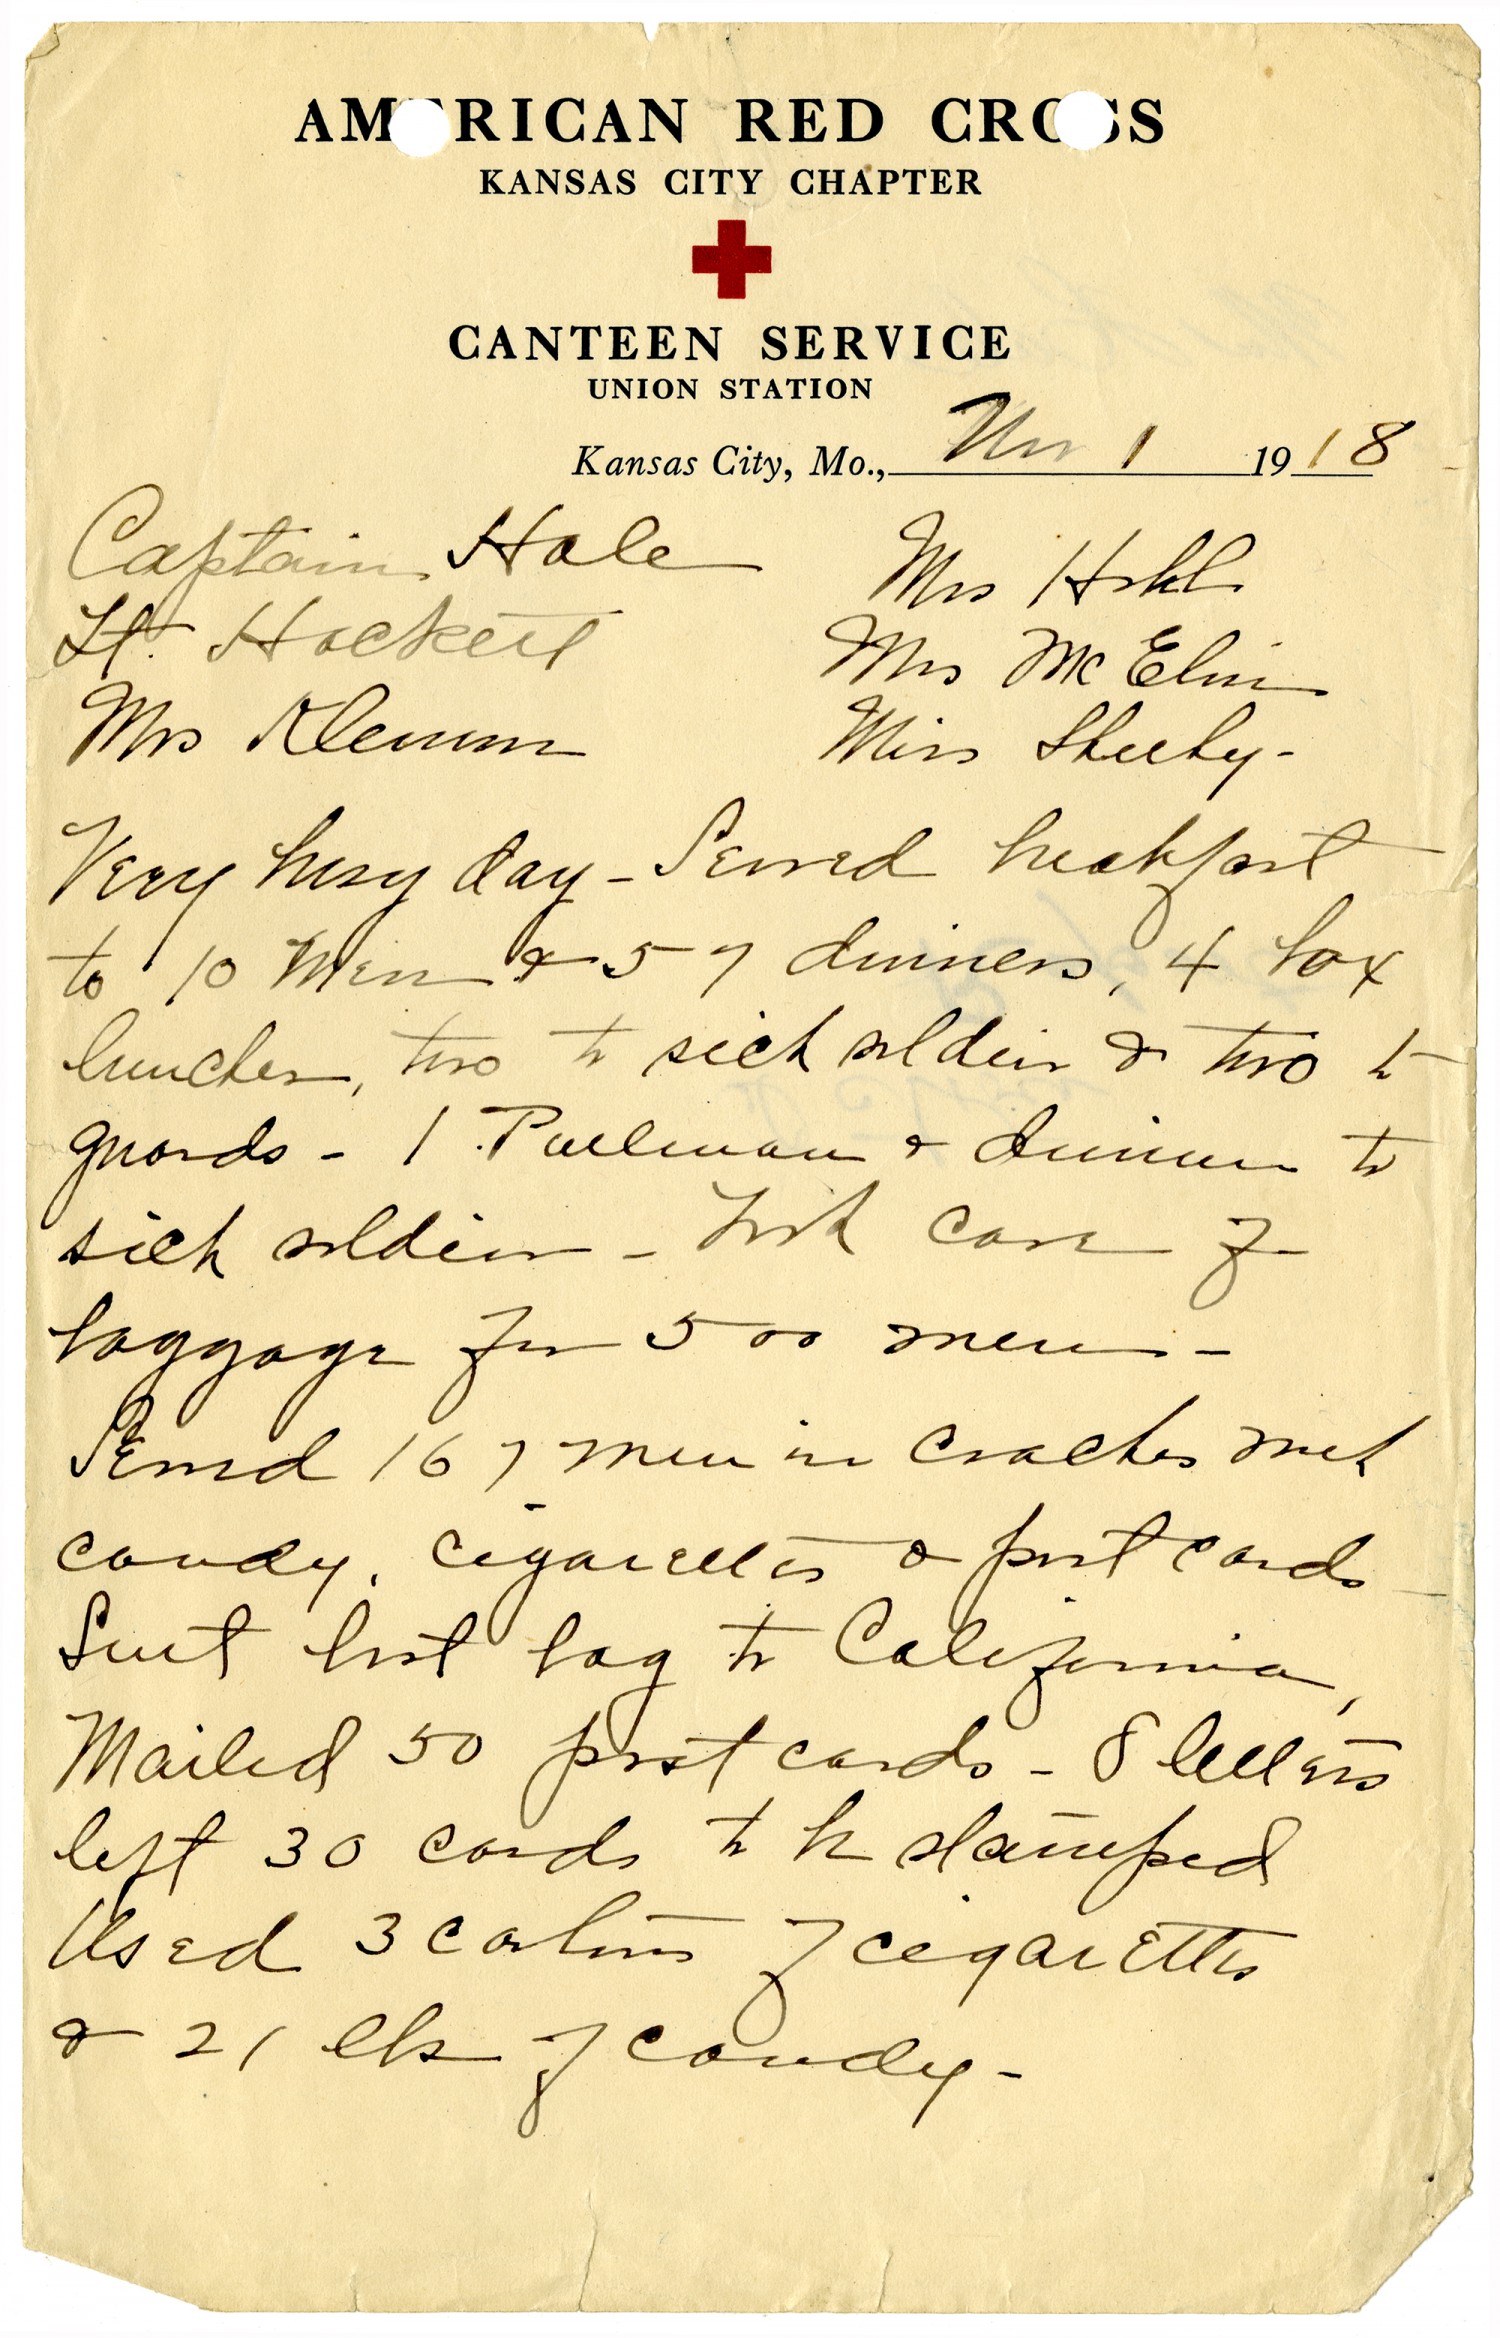 AMERICAN RED CROSS
KANSAS CITY CHAPTER
CANTEEN SERVICE
UNION STATION
Kansas City, Mo., Nov 1 1918
Captain Hale
Lt. Hockett
Mrs Klemm
Mrs
Mrs McElvin
Miss Sheehy -
Very busy day - Served breakfast
to 10 Men & 57 dinners, 4 box
lunches, two to sick soldiers & two to
guards - 1 Pullman & dinner to
sick soldier - Took care of
baggage for 500 men -
Served 167 men in coaches with
candy, cigarettes & post cards
Sent lost bag to California,
Mailed 50 post cards - 8 letters
left 30 cards to be stamped
Used 3 cartons of cigarettes
& 21 lbs of candy -